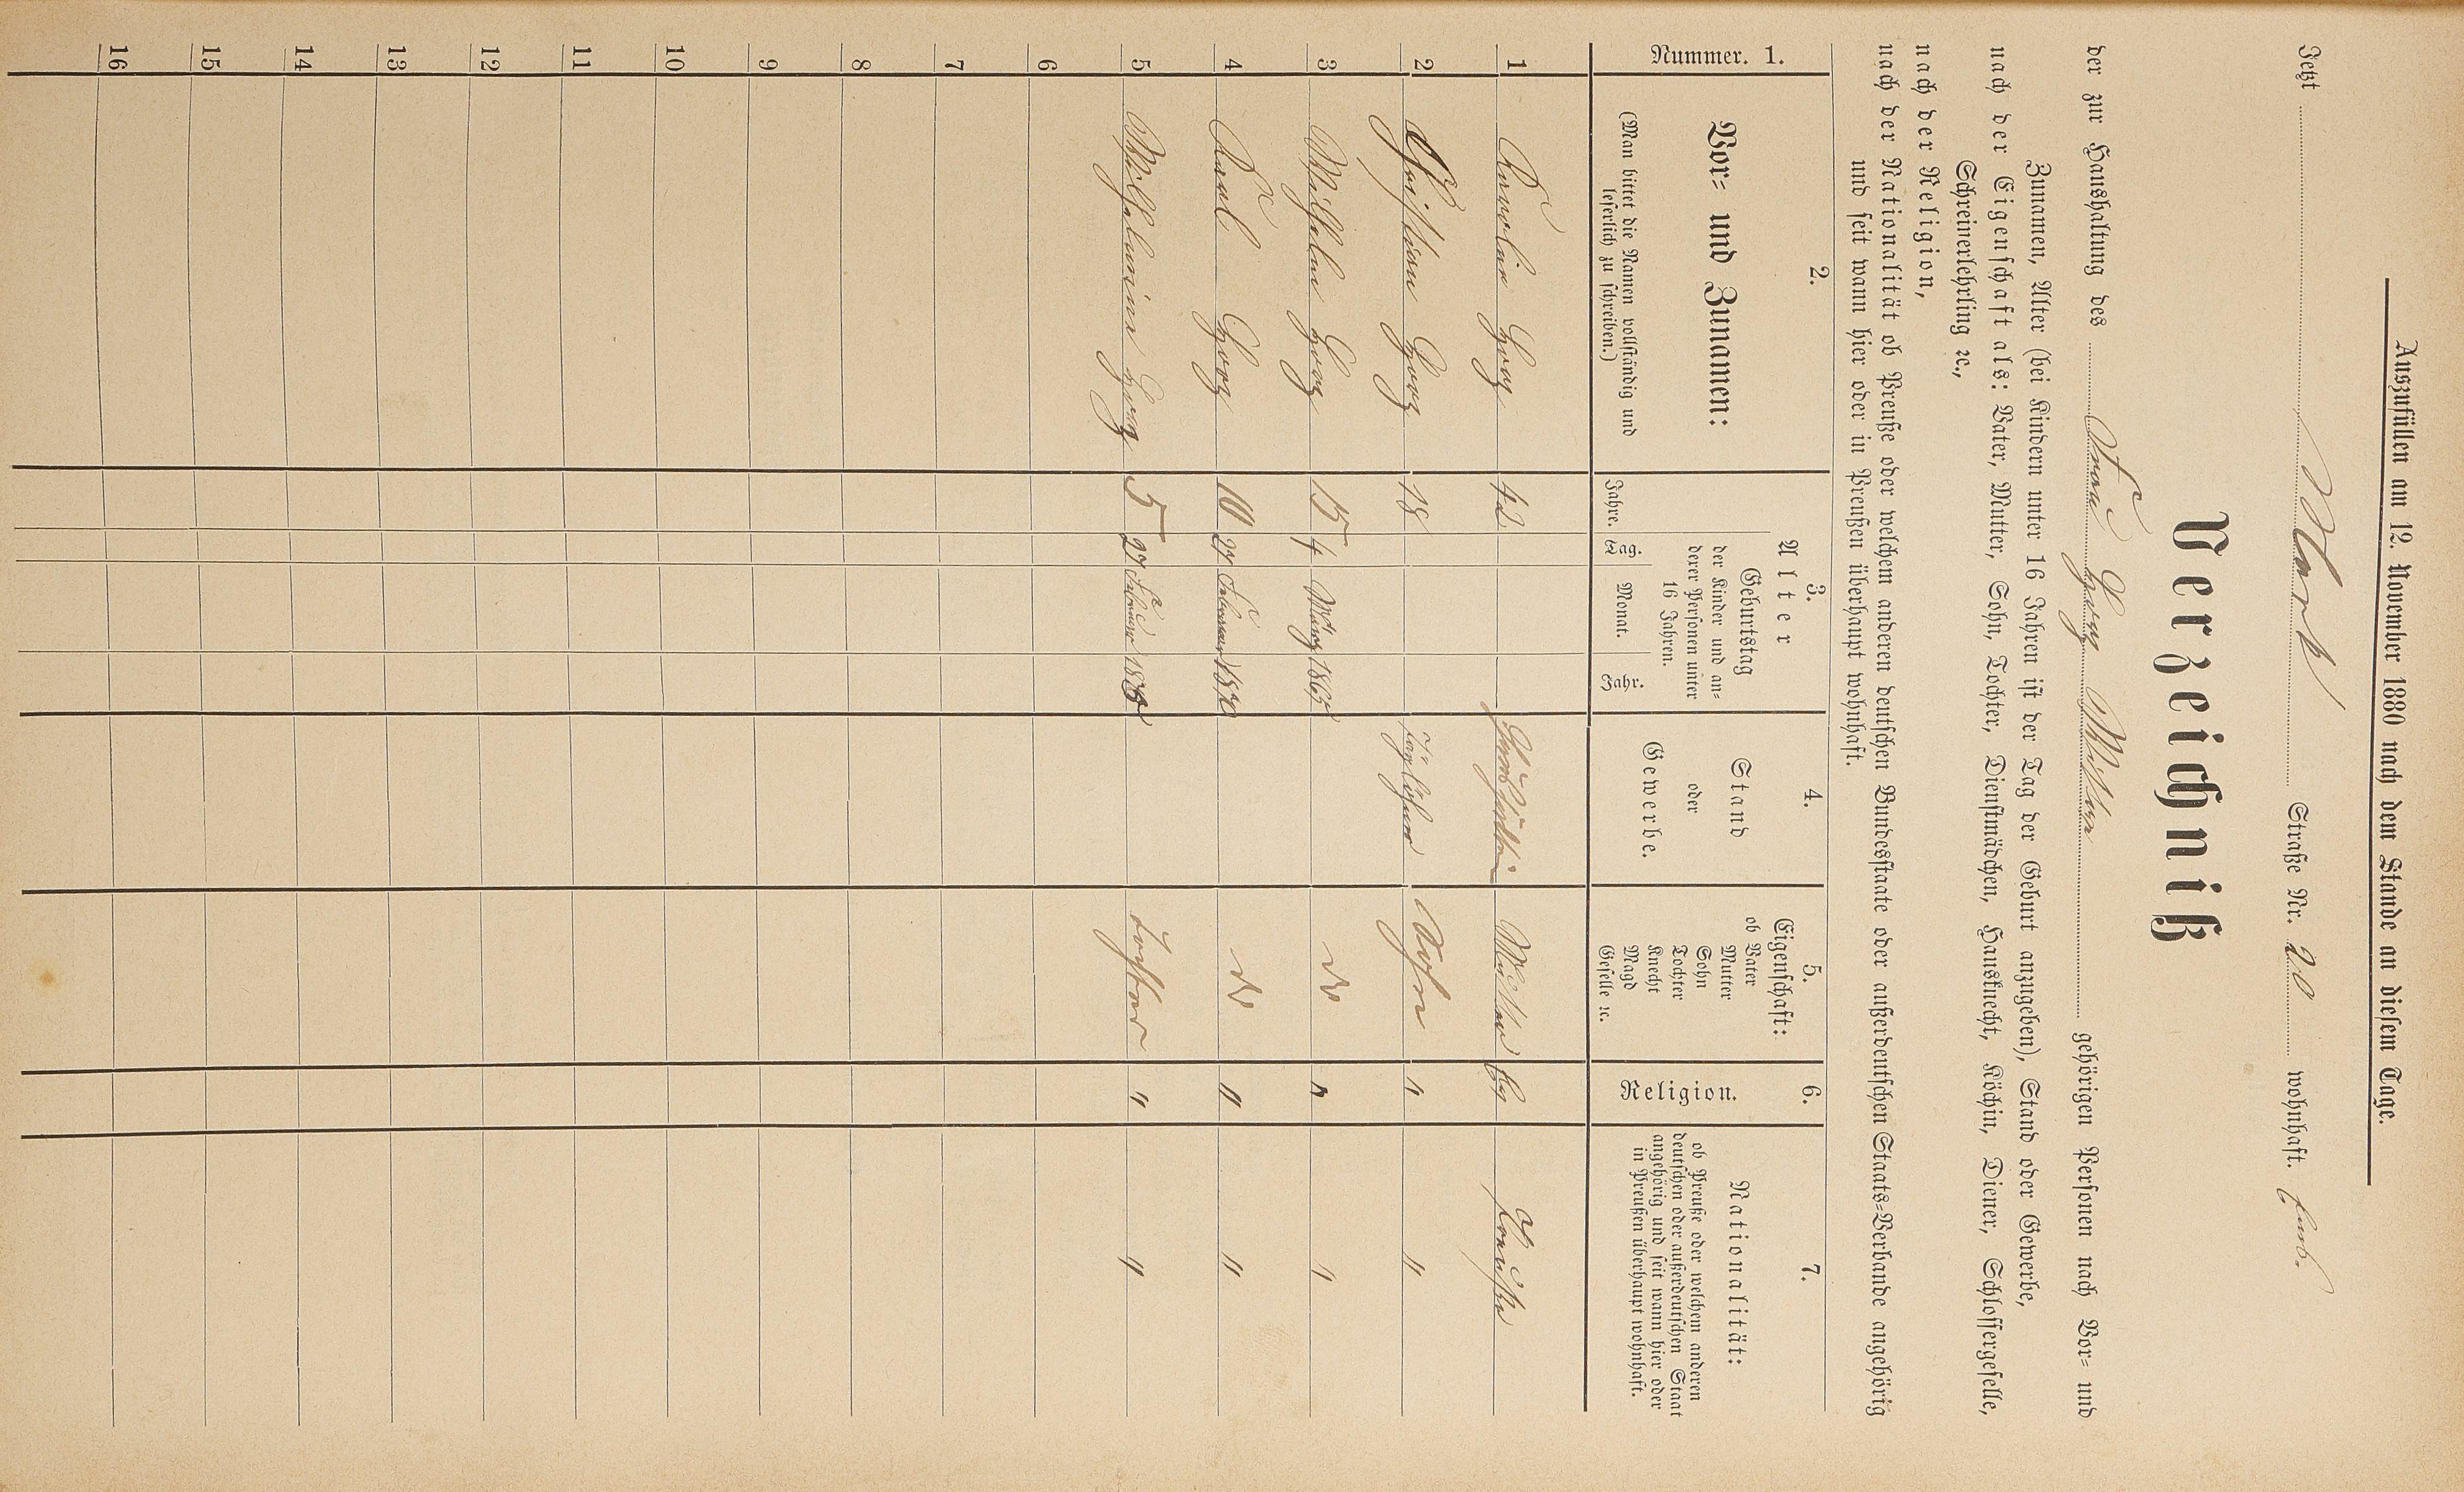 Auszufüllen am 12. November 1880 nach dem Stande an diesem Tage.
Jetzt Mark Straße Nr. 20 wohnhaft.
Verzeichniß
der zur Haushaltung des Frau Georg Wilhelm gehörigen Personen nach Vor- und
Zunamen, Alter (bei Kindern unter 16 Jahren ist der Tag der Geburt anzugeben), Stand oder Gewerbe,
nach der Eigenschaft als: Vater, Mutter, Sohn, Tochter, Dienstmädchen, Hausknecht, Köchin, Diener, Schlossergeselle,
Schreinerlehrling ꝛc.,
nach der Religion,
nach der Nationalität ob Preuße oder welchem anderen deutschen Bundesstaate oder außerdeutschen Staats-Verbande angehörig
und seit wann hier oder in Preußen überhaupt wohnhaft.
Nummer. 1.
2.
Vor- und Zunamen:
(Man bittet die Namen vollständig und
leserlich zu schreiben.)
3.
Alter
Jahre.
Geburtstag
der Kinder und an-
derer Personen unter
16 Jahren.
Tag. Monat. Jahr.
4.
Stand
oder
Gewerbe.
5.
Eigenschaft:
ob Vater
Mutter
Sohn
Tochter
Knecht
Magd
Geselle ꝛc.
6.
Religion.
7.
Nationalität:
ob Preuße oder welchem anderen
deutschen oder außerdeutschen Staat
angehörig und seit wann hier oder
in Preußen überhaupt wohnhaft.
1 Karolin Georg 42 Mutter Ev Preuße
2 Christian Georg 18 Taglöhner Sohn " "
3 Wilhelm Georg 15 4 März 1865 do " "
4 Karl Georg 10 27 Februar 1870 do " "
5 Wilhelmine Georg 5 27 Februar Tochter " "
6
7
8
9
10
11
12
13
14
15
16